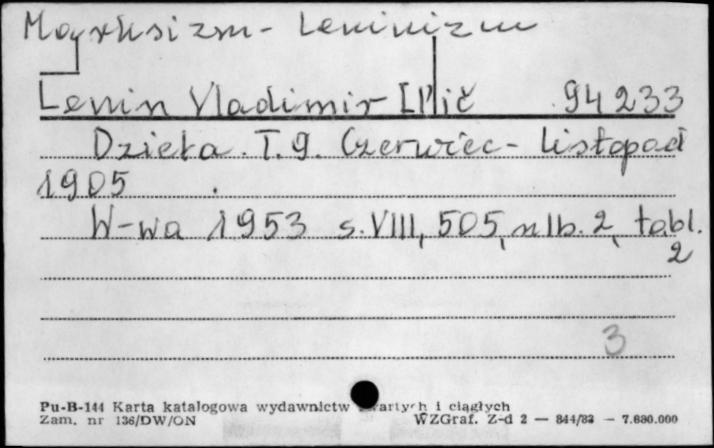 Marksizm-Leninizm
Lenin Vladimir Il'ič 94233
Dzieła. T. 9. Czerwiec - listopad
1905.
W-wa 1953 s. VIII, 505, nlb. 2, tabl.
2
3
Pu-B-144 Karta katalogowa wydawnictw zwartych i ciągłych
Zam. nr 136/DW/ON WZGraf. Z-d 2 — 844/83 — 7.680.000